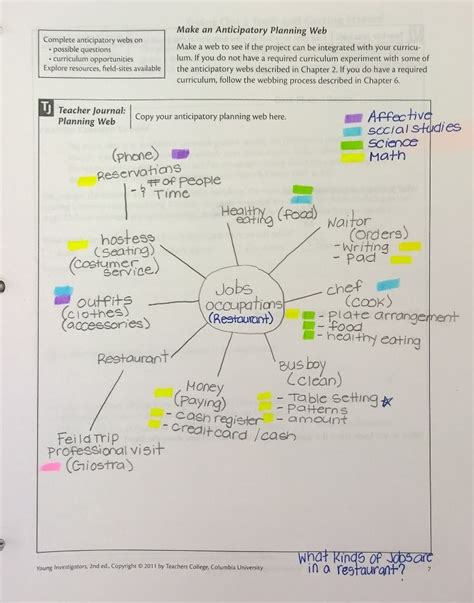 Make an Anticipatory Planning Web
Complete anticipatory webs on
• possible questions
• curriculum opportunities
Explore resources, field-sites available
Make a web to see if the project can be integrated with your curricu-
lum. If you do not have a required curriculum experiment with some of
the anticipatory webs described in Chapter 2. If you do have a required
curriculum, follow the webbing process described in Chapter 6.
TJ
Teacher Journal:
Planning Web
Copy your anticipatory planning web here.
Affective
social studies
science
Math
(phone)
Reservations
- # of people
- & Time
Healthy
eating (food)
Waitor
(orders)
- Writing
- Pad
hostess
(Seating)
(Costumer
service)
Jobs
occupations
(Restaurant)
chef
(cook)
- Plate arrangement
- food
- healthy eating
outfits
(clothes)
(accessories)
Restaurant
Busboy
(clean)
- Table setting
- Patterns
- amount
Money
(Paying)
- cash register
- creditcard /cash
Feild Trip
Professional visit
(Giostra)
What Kinds of Jobs are
in a restaurant?
Young Investigators, 2nd ed., Copyright © 2011 by Teachers College, Columbia University
7